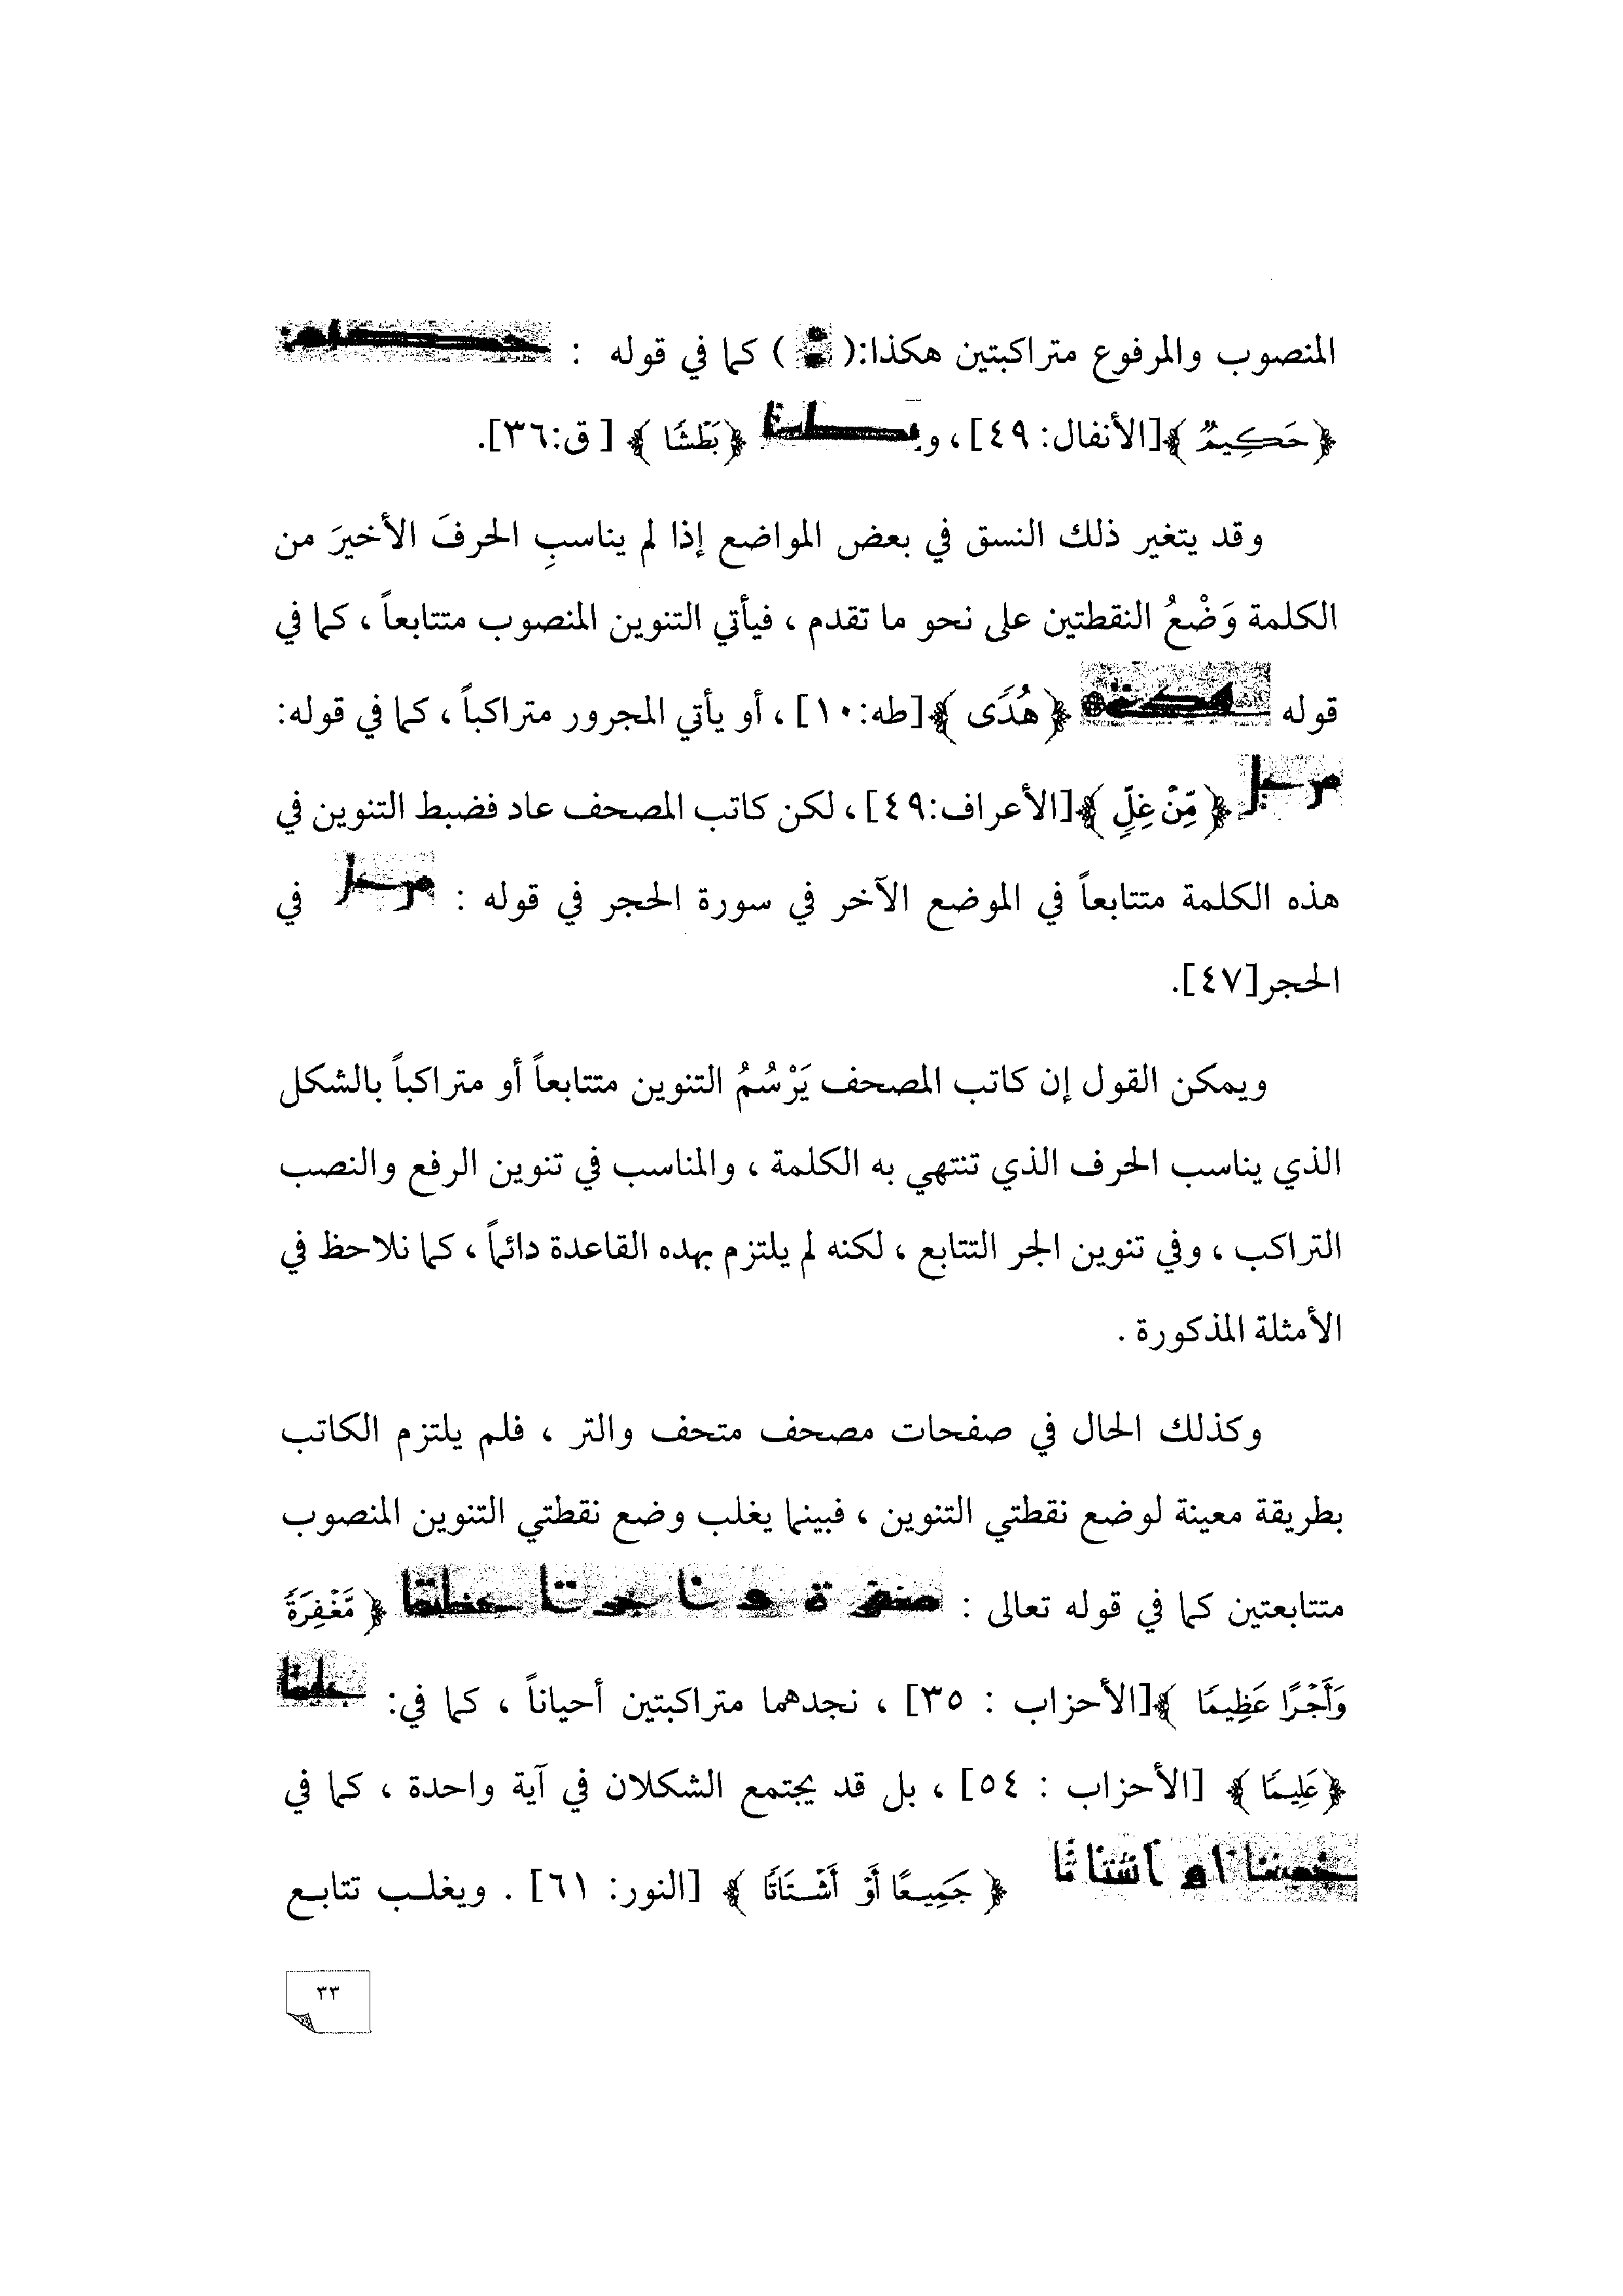 المنصوب والمرفوع متراكبتين هكذا:( ) كما في قوله :
﴿ حَكِيمٌ ﴾[الأنفال: ٤٩] ، و ﴿ بَطْشًا ﴾ [ ق:٣٦].
وقد يتغير ذلك النسق في بعض المواضع إذا لم يناسبِ الحرفَ الأخيرَ من
الكلمة وَضْعُ النقطتين على نحو ما تقدم ، فيأتي التنوين المنصوب متتابعاً ، كما في
قوله ﴿ هُدًى ﴾[طه:١٠] ، أو يأتي المجرور متراكباً ، كما في قوله:
﴿ مِّنْ غِلٍّ ﴾[الأعراف:٤٩] ، لكن كاتب المصحف عاد فضبط التنوين في
هذه الكلمة متتابعاً في الموضع الآخر في سورة الحجر في قوله : في
الحجر[٤٧].
ويمكن القول إن كاتب المصحف يَرْسُمُ التنوين متتابعاً أو متراكباً بالشكل
الذي يناسب الحرف الذي تنتهي به الكلمة ، والمناسب في تنوين الرفع والنصب
التراكب ، وفي تنوين الجر التتابع ، لكنه لم يلتزم بهذه القاعدة دائماً ، كما نلاحظ في
الأمثلة المذكورة .
وكذلك الحال في صفحات مصحف متحف والتر ، فلم يلتزم الكاتب
بطريقة معينة لوضع نقطتي التنوين ، فبينما يغلب وضع نقطتي التنوين المنصوب
متتابعتين كما في قوله تعالى : ﴿ مَّغْفِرَةً
وَأَجْرًا عَظِيمًا ﴾[الأحزاب : ٣٥] ، نجدهما متراكبتين أحياناً ، كما في:
﴿ عَلِيمًا ﴾ [الأحزاب : ٥٤] ، بل قد يجتمع الشكلان في آية واحدة ، كما في
﴿ جَمِيعًا أَوْ أَشْتَاتًا ﴾ [النور: ٦١] . ويغلب تتابع
٣٣